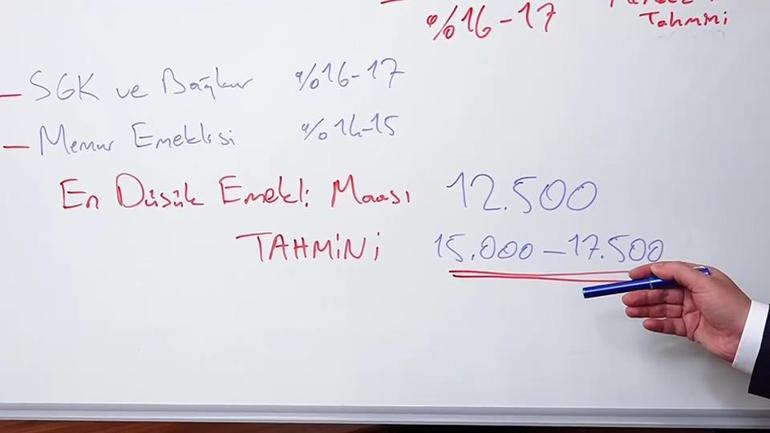 %16-17
Tahmini
SGK ve Bağkur %16-17
Memur Emeklisi %14-15
En Düşük Emekli Maaşı 12.500
TAHMiNi 15.000-17.500